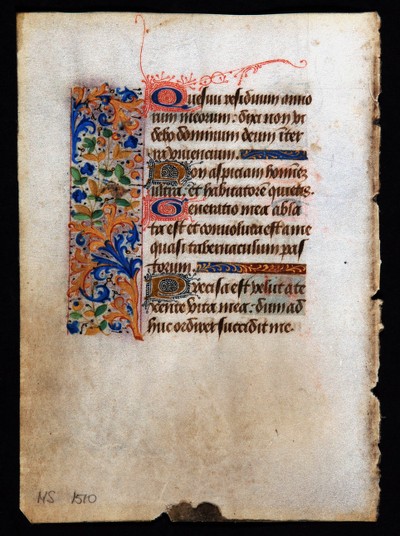 Quesiui residuum anno
rum meorum: dixi non vi
debo dominum deum in ter
ra viuencium.
Non aspiciam hominez
ultra. et habitatorē quietis.
Generatio mea abla
ta est et conuoluta est a me
quasi tabernaculum pas
torum.
Precisa est velut a te
xente vita mea. dum ad
huc ordirer succidit me
MS 1510